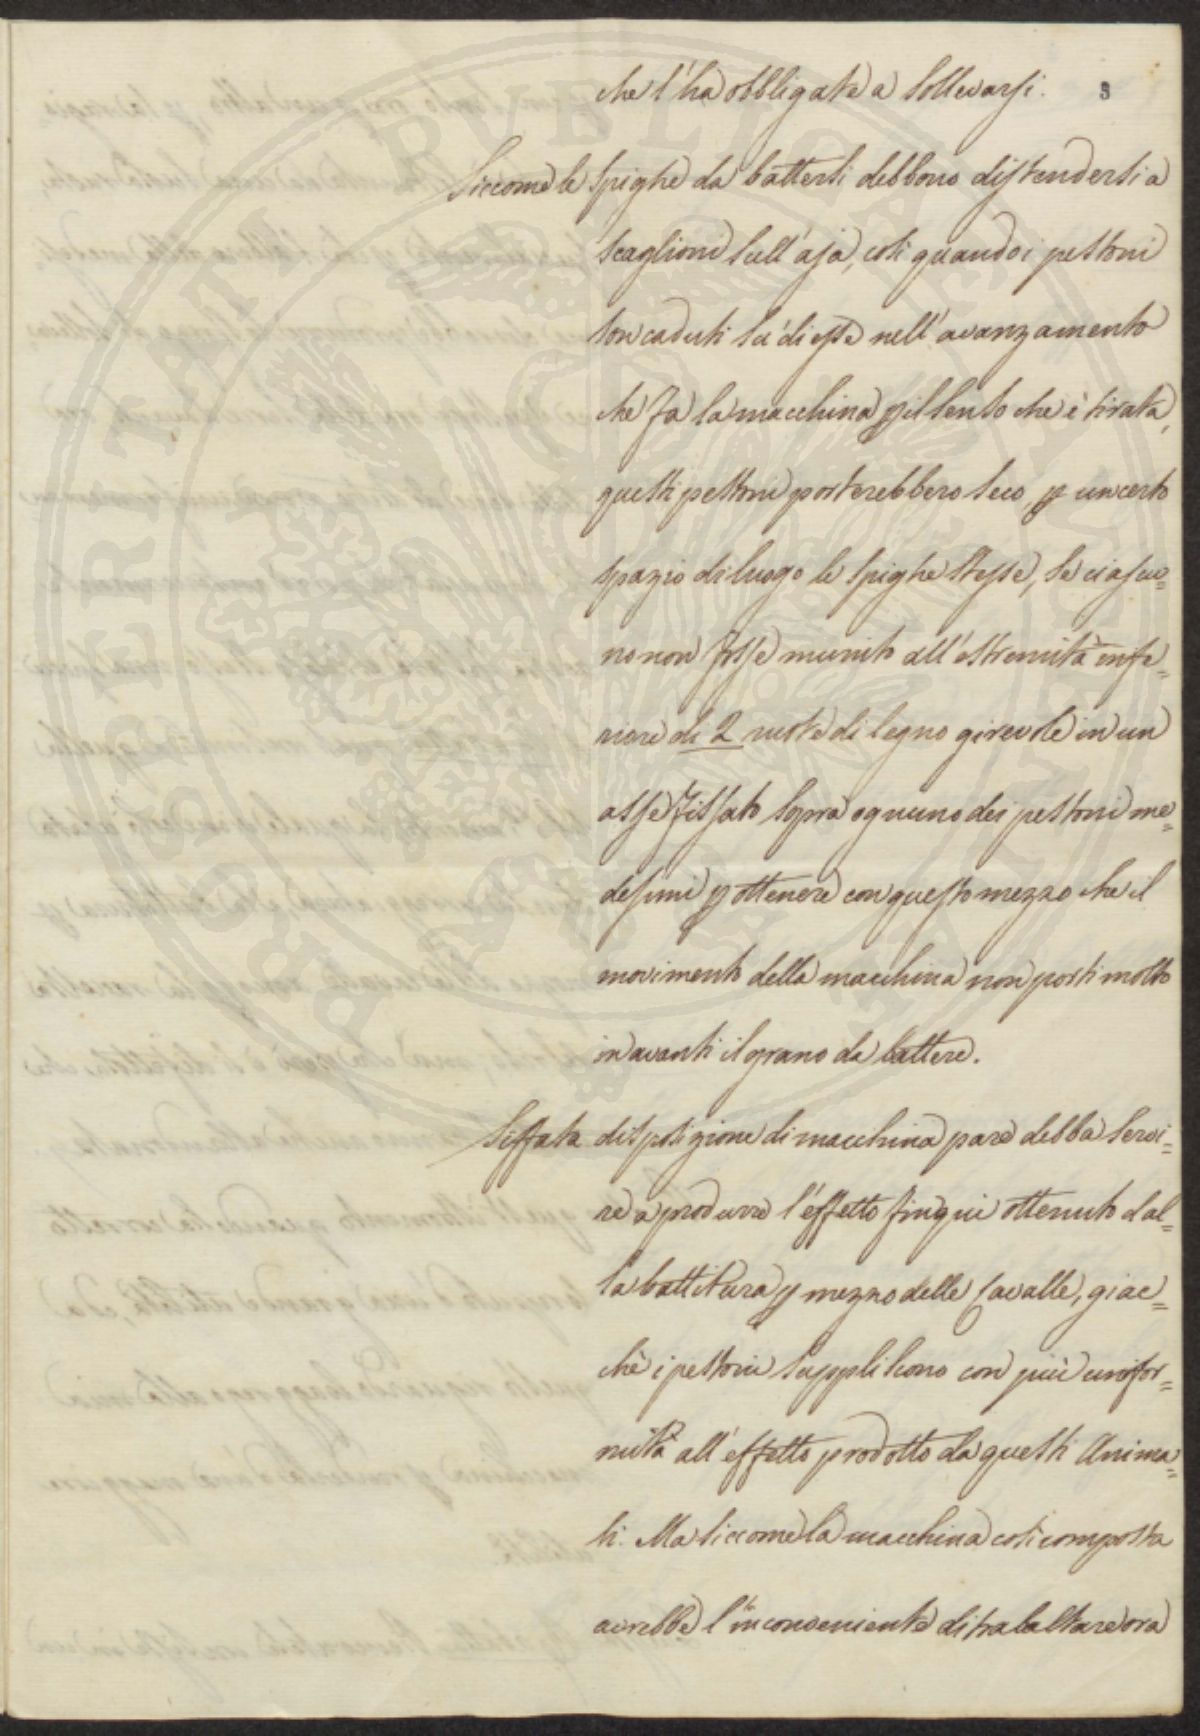 3
che l'ha obbligata a sollevarsi.
Siccome le spighe da battersi debbono distendersi a
scaglioni sull'aja, così quando i pestoni
son caduti su di esse nell'avanzamento
che fa la macchina p il senso che è tirata,
questi pestoni porterebbero seco, p un certo
spazio di luogo le spighe stesse, se ciascu=
no non fosse munito all'estremità infe=
riore di 2 ruote di legno girevole in un
asse fissato sopra ognuno dei pestoni me=
desimi p ottenere con questo mezzo che il
movimento della macchina non porti molto
in avanti il grano da battere.
Siffata disposizione di macchina pare debba servi=
re a produrre l'effetto finqui ottenuto dal=
la battitura p mezzo delle Cavalle, giac=
chè i pestoni suppliscono con più unifor=
mità all'effetto prodotto da questi Anima=
li. Ma siccome la macchina così composta
avrebbe l'inconveniente di trabaltare ora
PROSPERITATI PUBLICAE AUGENDAE